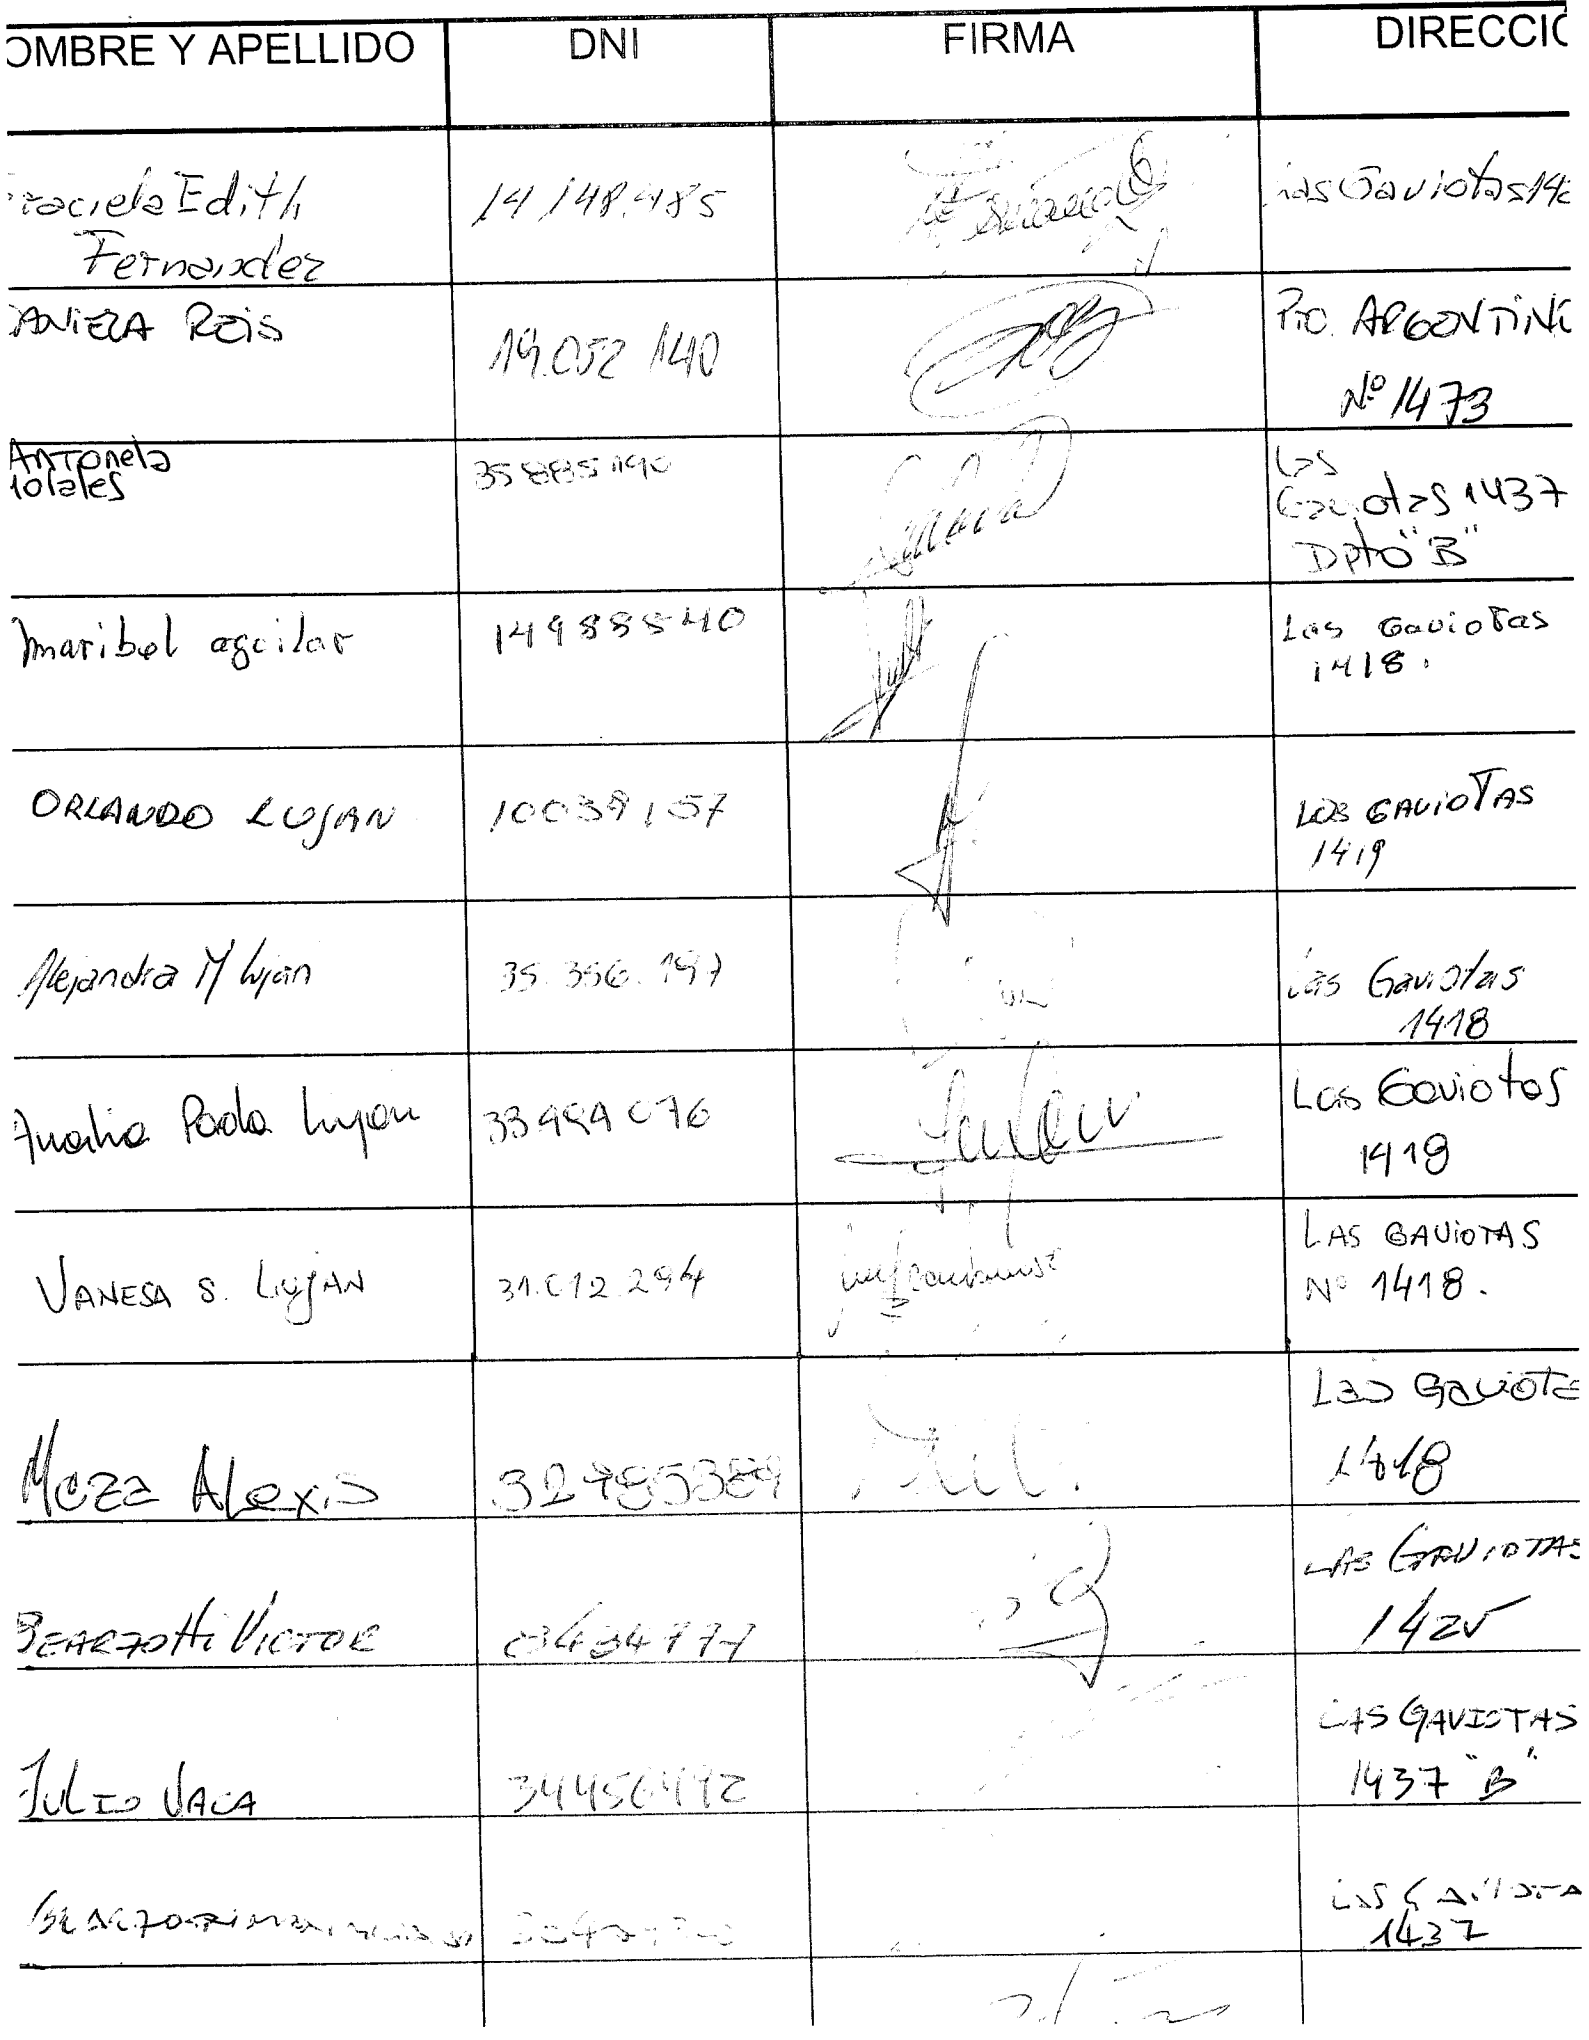 OMBRE Y APELLIDO DNI FIRMA DIRECCIÓ
raciela Edith 14.148.485 Las Gaviotas 14
Fernandez
ANIELA REIS 19.052.140 Pto. ARGENTIN
Nº 1473
Antonela 35885190 Las
Gaviotas 1437
Dpto "B"
maribel aguilar 14988540 Las Gaviotas
1418.
ORLANDO LUJAN 10039157 LOS GAVIOTAS
1419
Alejandra M Lujan 35.356.197 Las Gaviotas
1418
Analia Paola Lujan Las Gaviotas
1418
VANESA S. LUJAN 31.012.294 LAS GAVIOTAS
Nº 1418.
Meza Alexis 32785389 Las Gaviota
1418
BEARZOTTI VICTOR LAS GAVIOTAS
1425
JULIO VACA LAS GAVIOTAS
1437 "B"
LAS GAVIOTA
1437